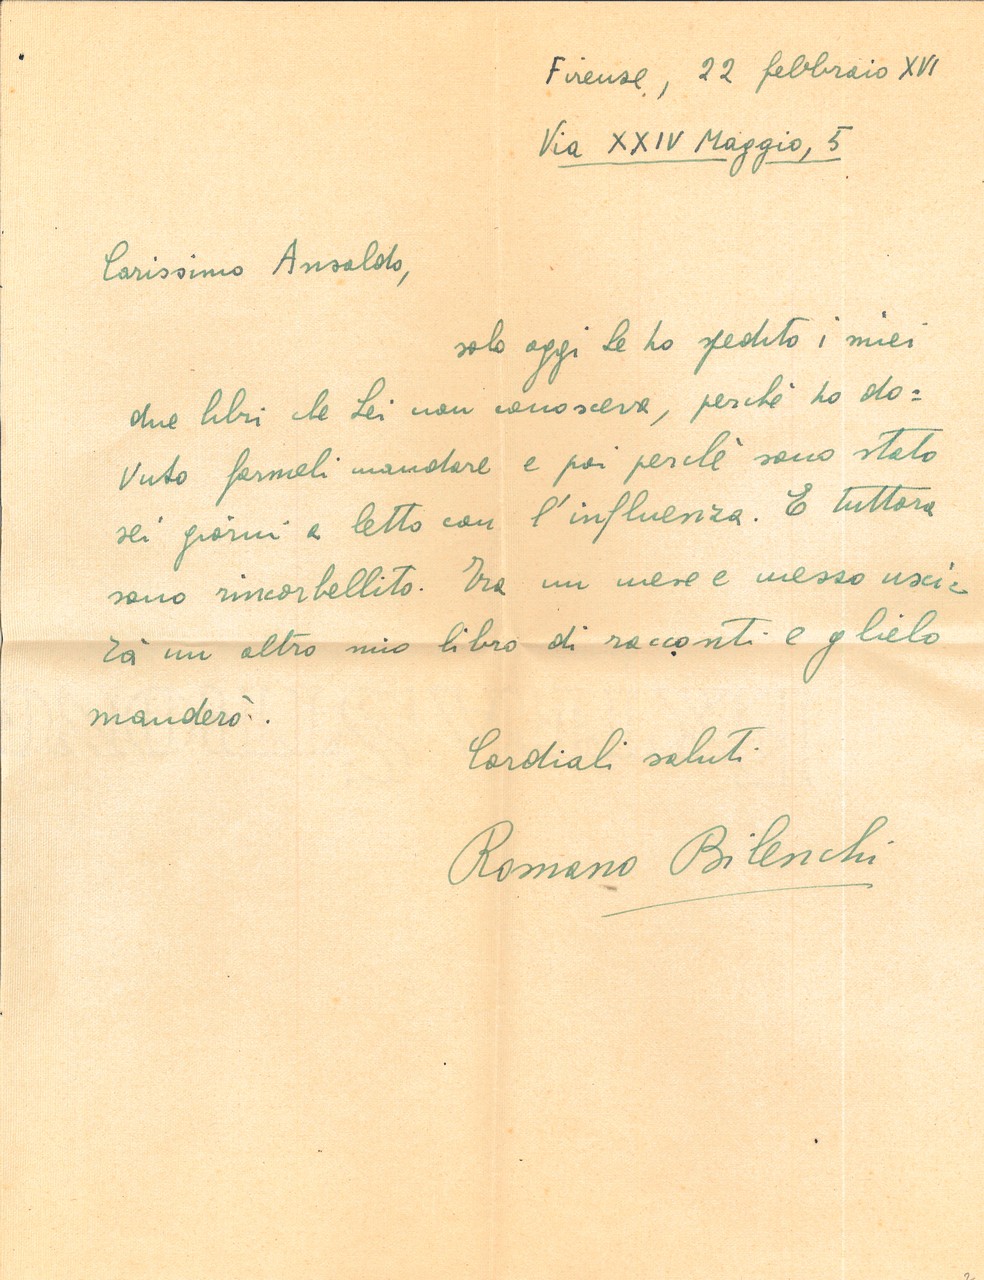 Firenze, 22 febbraio XVI
Via XXIV Maggio, 5
Carissimo Ansaldo,
solo oggi Le ho spedito i miei
due libri che Lei non conosceva, perchè ho do=
vuto farmeli mandare e poi perchè sono stato
sei giorni a letto con l'influenza. E tuttora
sono rincorbellito. Tra un mese e mezzo usci=
rà un altro mio libro di racconti e glielo
manderò.
Cordiali saluti
Romano Bilenchi